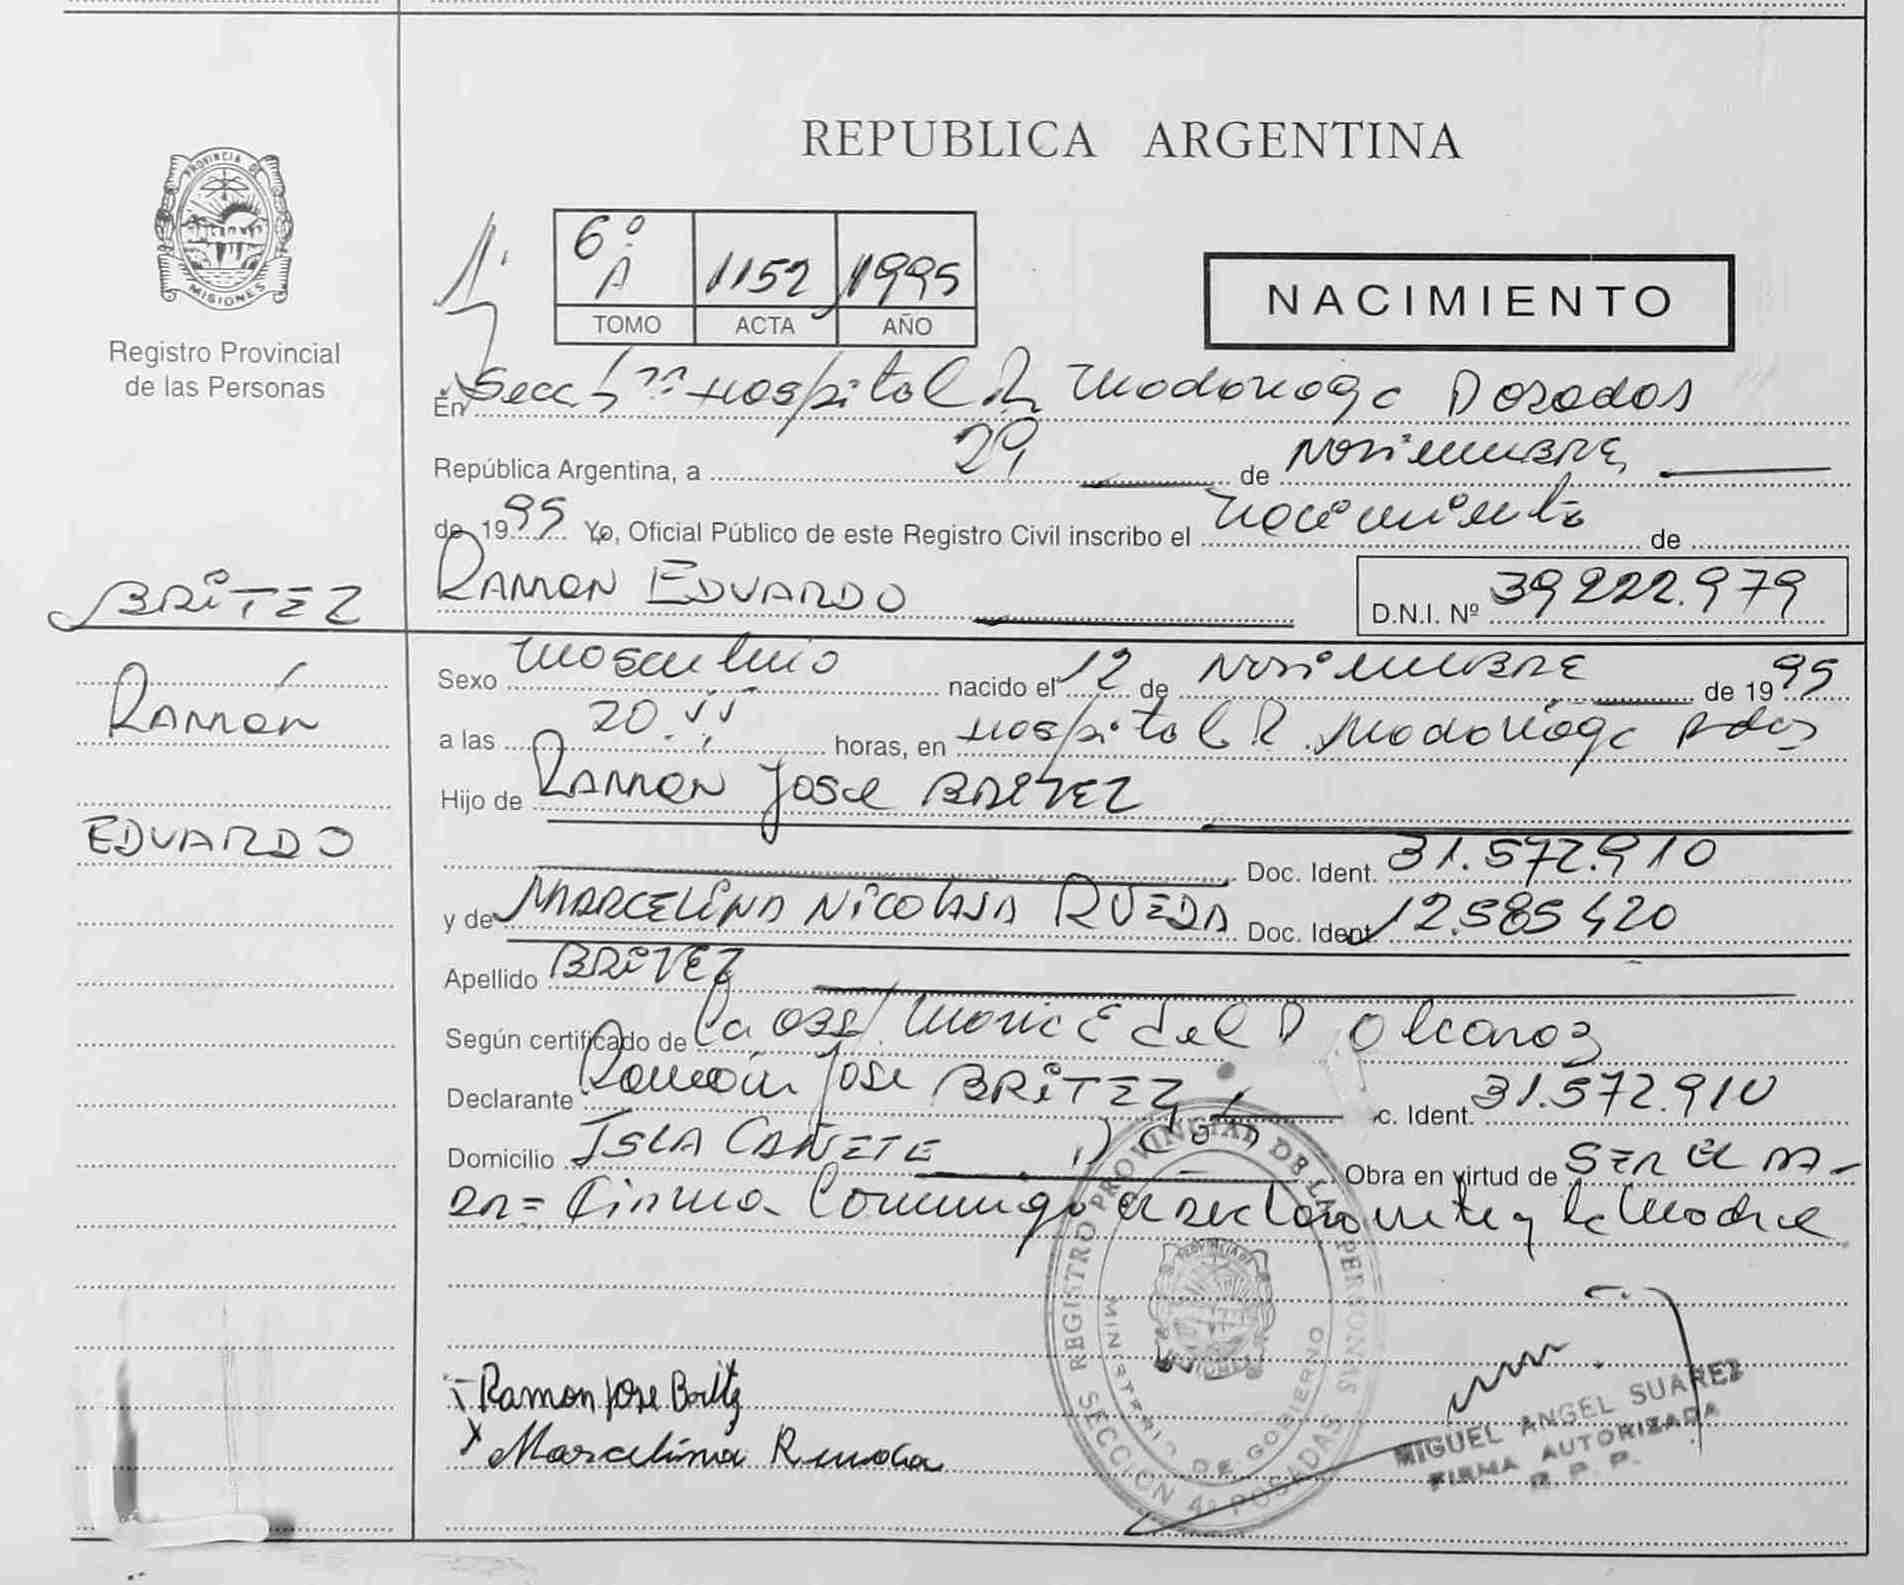 REPUBLICA ARGENTINA
PROVINCIA DE
MISIONES
Registro Provincial
de las Personas
6º A 1152 1995
TOMO ACTA AÑO
NACIMIENTO
En Secc Hospital R Madariaga Posadas
República Argentina, a 29 de Noviembre
de 1995 Yo, Oficial Público de este Registro Civil inscribo el nacimiento de
BRITEZ
RAMON EDUARDO
D.N.I. Nº 39222.979
Ramón
EDUARDO
Sexo masculino nacido el 12 de Noviembre de 1995
a las 20. horas, en Hospital R. Madariaga Pdas
Hijo de RAMON Jose BRITEZ
Doc. Ident. 31.572.910
y de MARCELINA NICOLASA RUEDA Doc. Ident. 12.585420
Apellido BRITEZ
Según certificado de La Alcaraz
Declarante Ramón Jose BRITEZ c. Ident. 31.572.910
Domicilio ISLA CAÑETE Obra en virtud de SER EL PA-
DRE= Firma Conmigo el declarante y la Madre
Ramon jose Britz
Marcelina Rueda
REGISTRO PROVINCIAL DE LAS PERSONAS
MINISTERIO DE GOBIERNO
SECCION 4ª POSADAS
MIGUEL ANGEL SUAREZ
FIRMA AUTORIZADA
R. P. P.